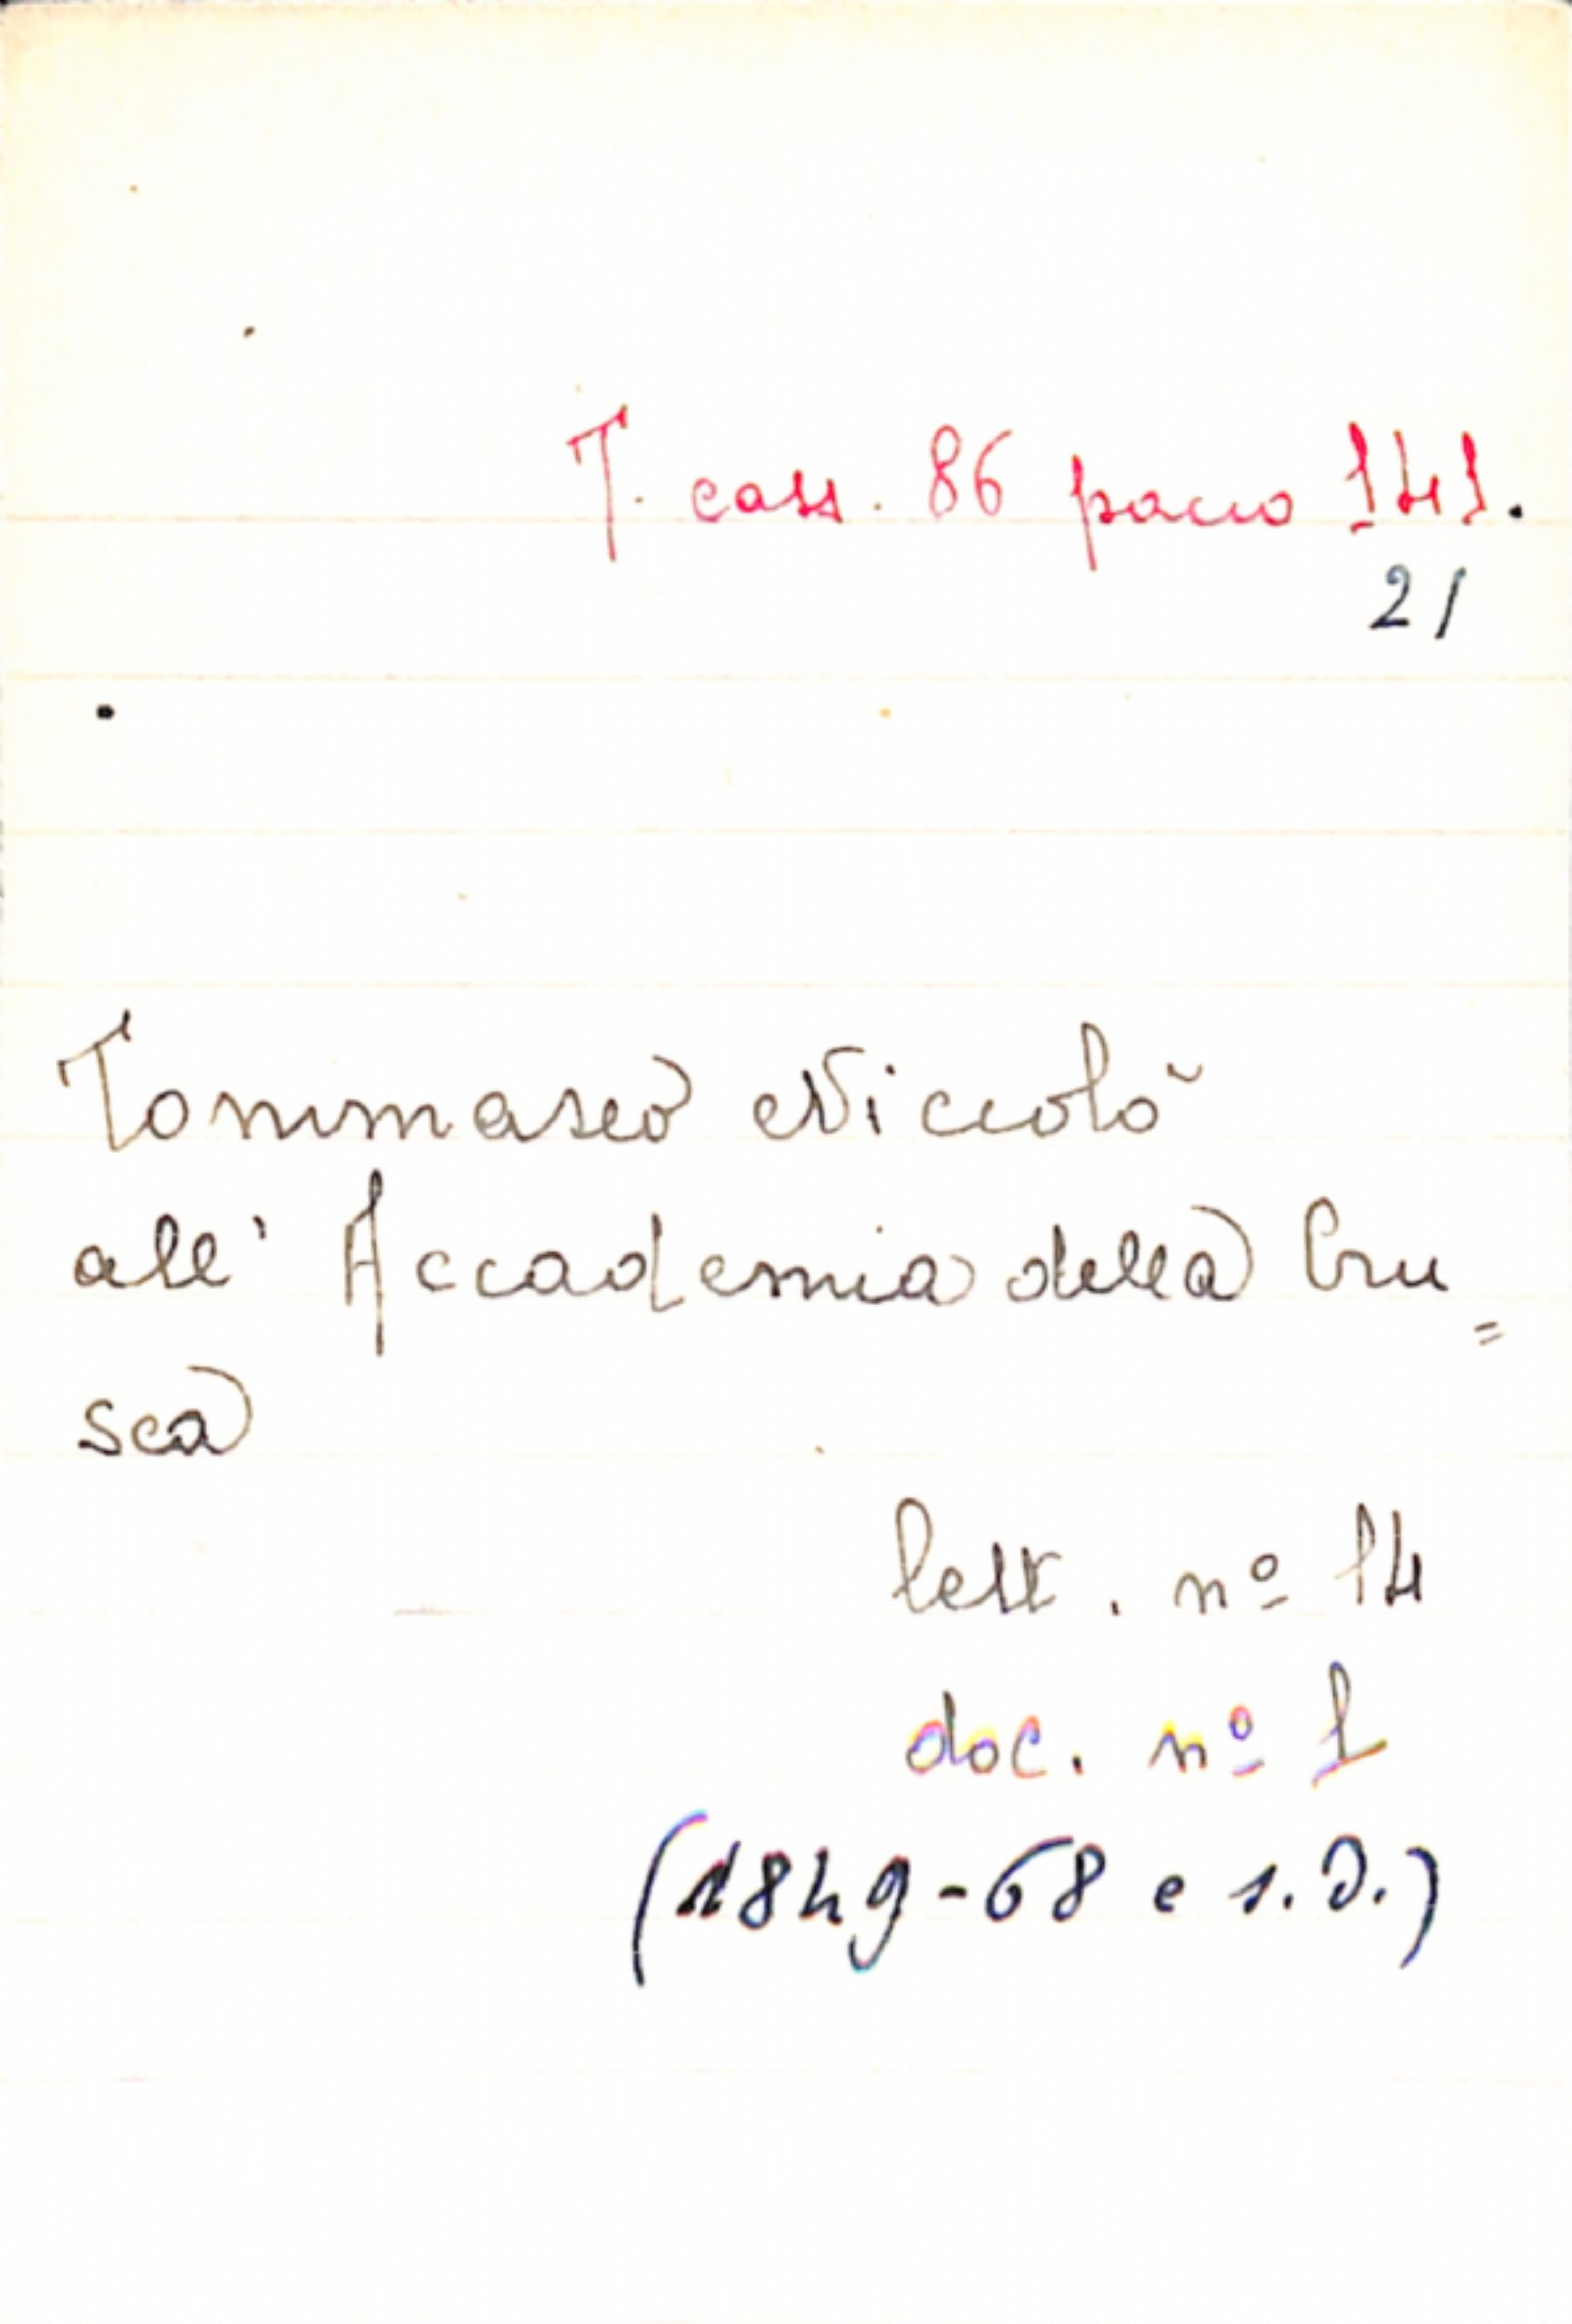 T. cass. 86 pacco 141.
21
Tommaseo Niccolò
all' Accademia della Cru=
sca
lett. nº 14
doc. nº 1
(1849-68 e s.d.)